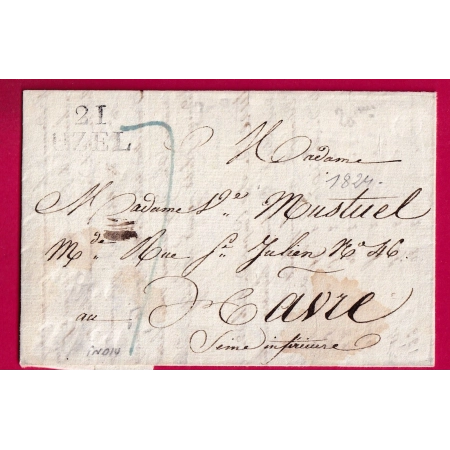 21
UZEL
7
Madame
1824.
Madame Vve Mustuel
Mde Rue St Julien No 46.
au Havre
Seine inferieure
IND 14